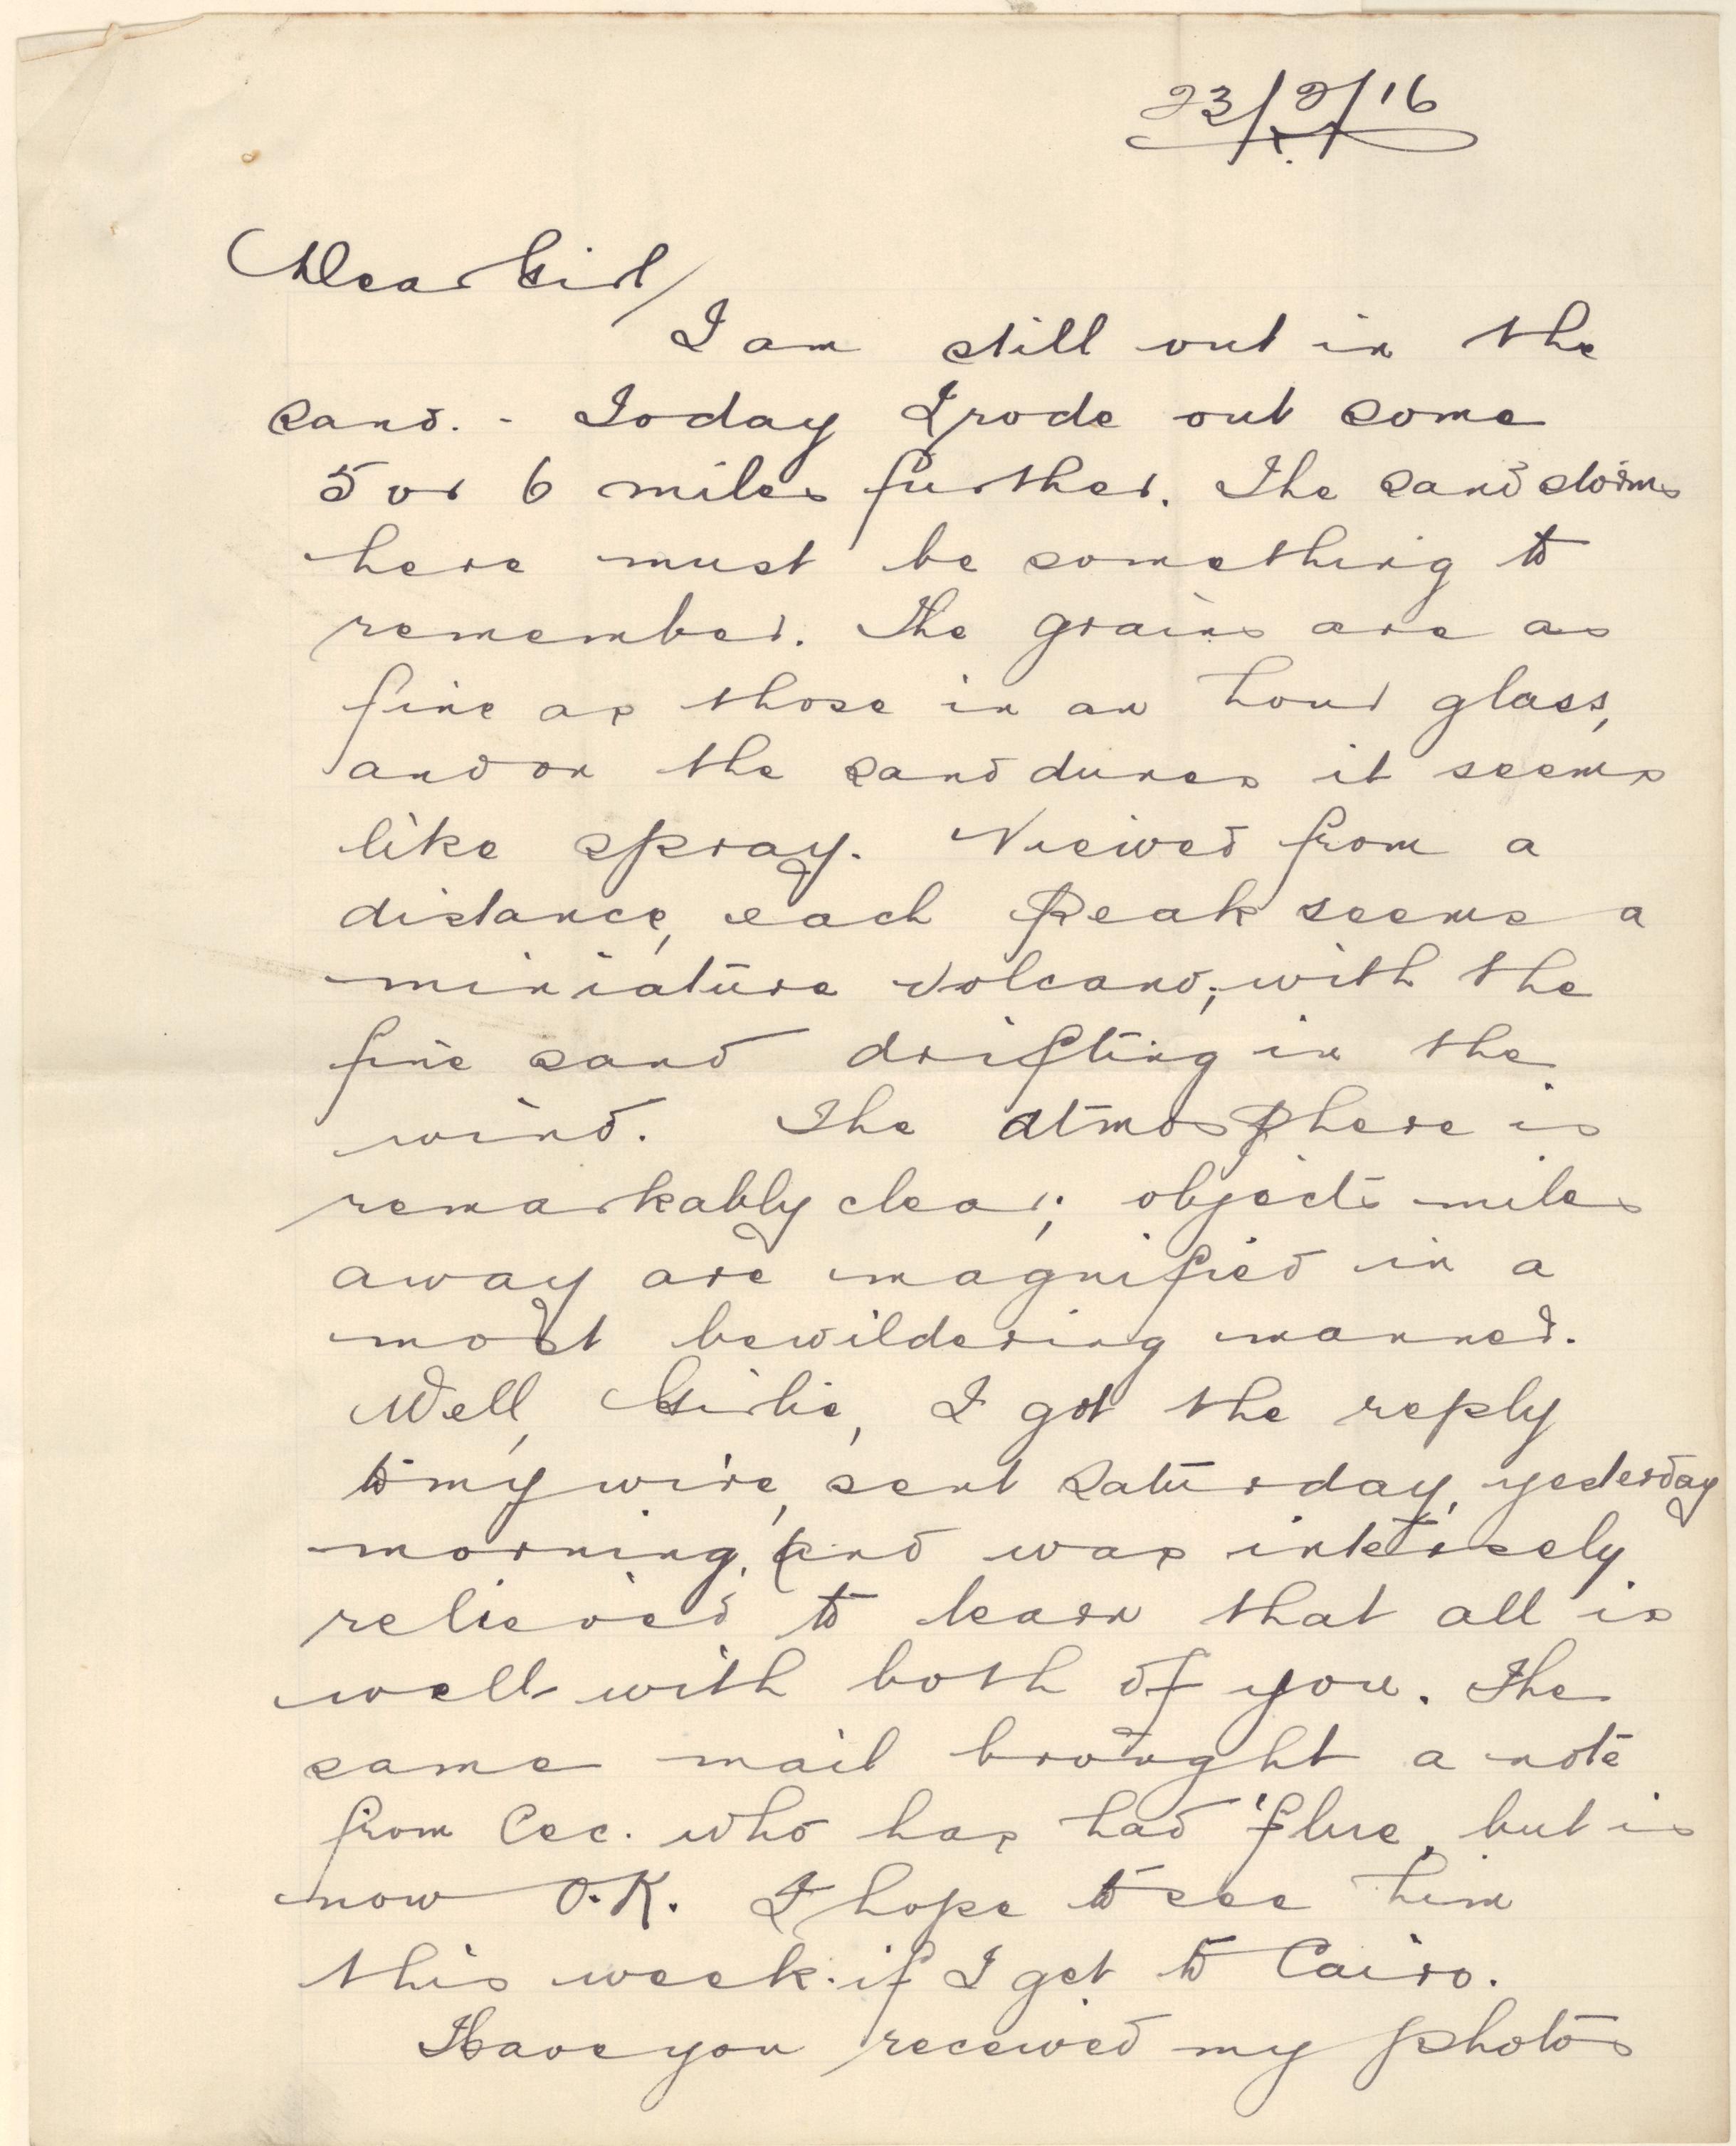 23/2/16
Dear Girl/
I am still out in the
sand. - Today I rode out some
5 or 6 miles further. The sand storms
here must be something to
remember. The grains are as
fine as those in an hour glass,
and on the sand dunes it seems
like spray. Viewed from a
distance, each peak seems a
miniature volcano; with the
fine sand drifting in the
wind. The atmosphere is
remarkably clear; objects miles
away are magnified in a
most bewildering manner.
Well, Girlie, I got the reply
to my wire, sent Saturday, yesterday
morning, and was intensely
relieved to learn that all is
well with both of you. The
same mail brought a note
from Cec. who has had 'flue, but is
now O.K. I hope to see him
this week if I get to Cairo.
Have you received my photos